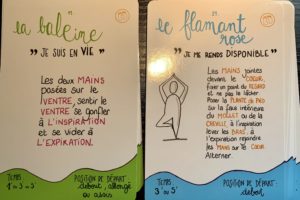 la baleine
" JE SUIS EN VIE "
Les deux MAINS
posées sur le
VENTRE, sentir le
VENTRE se gonfler
à L'INSPIRATION
et se vider à
L'EXPIRATION.
TEMPS
1' ou 3 ou 5'
POSITION DE DÉPART :
debout, allongé
ou assis
le flamant
rose
" JE ME RENDS DISPONIBLE "
Les MAINS jointes
devant le COEUR,
fixer un point du REGARD
et ne pas le lâcher.
Poser la PLANTE du PIED
sur la face intérieure
du MOLLET ou de la
CHEVILLE. À l'inspiration
lever les BRAS, à
l'expiration rejoindre
les MAINS au COEUR
Alterner.
TEMPS
3' ou 5'
POSITION DE DÉPART :
debout